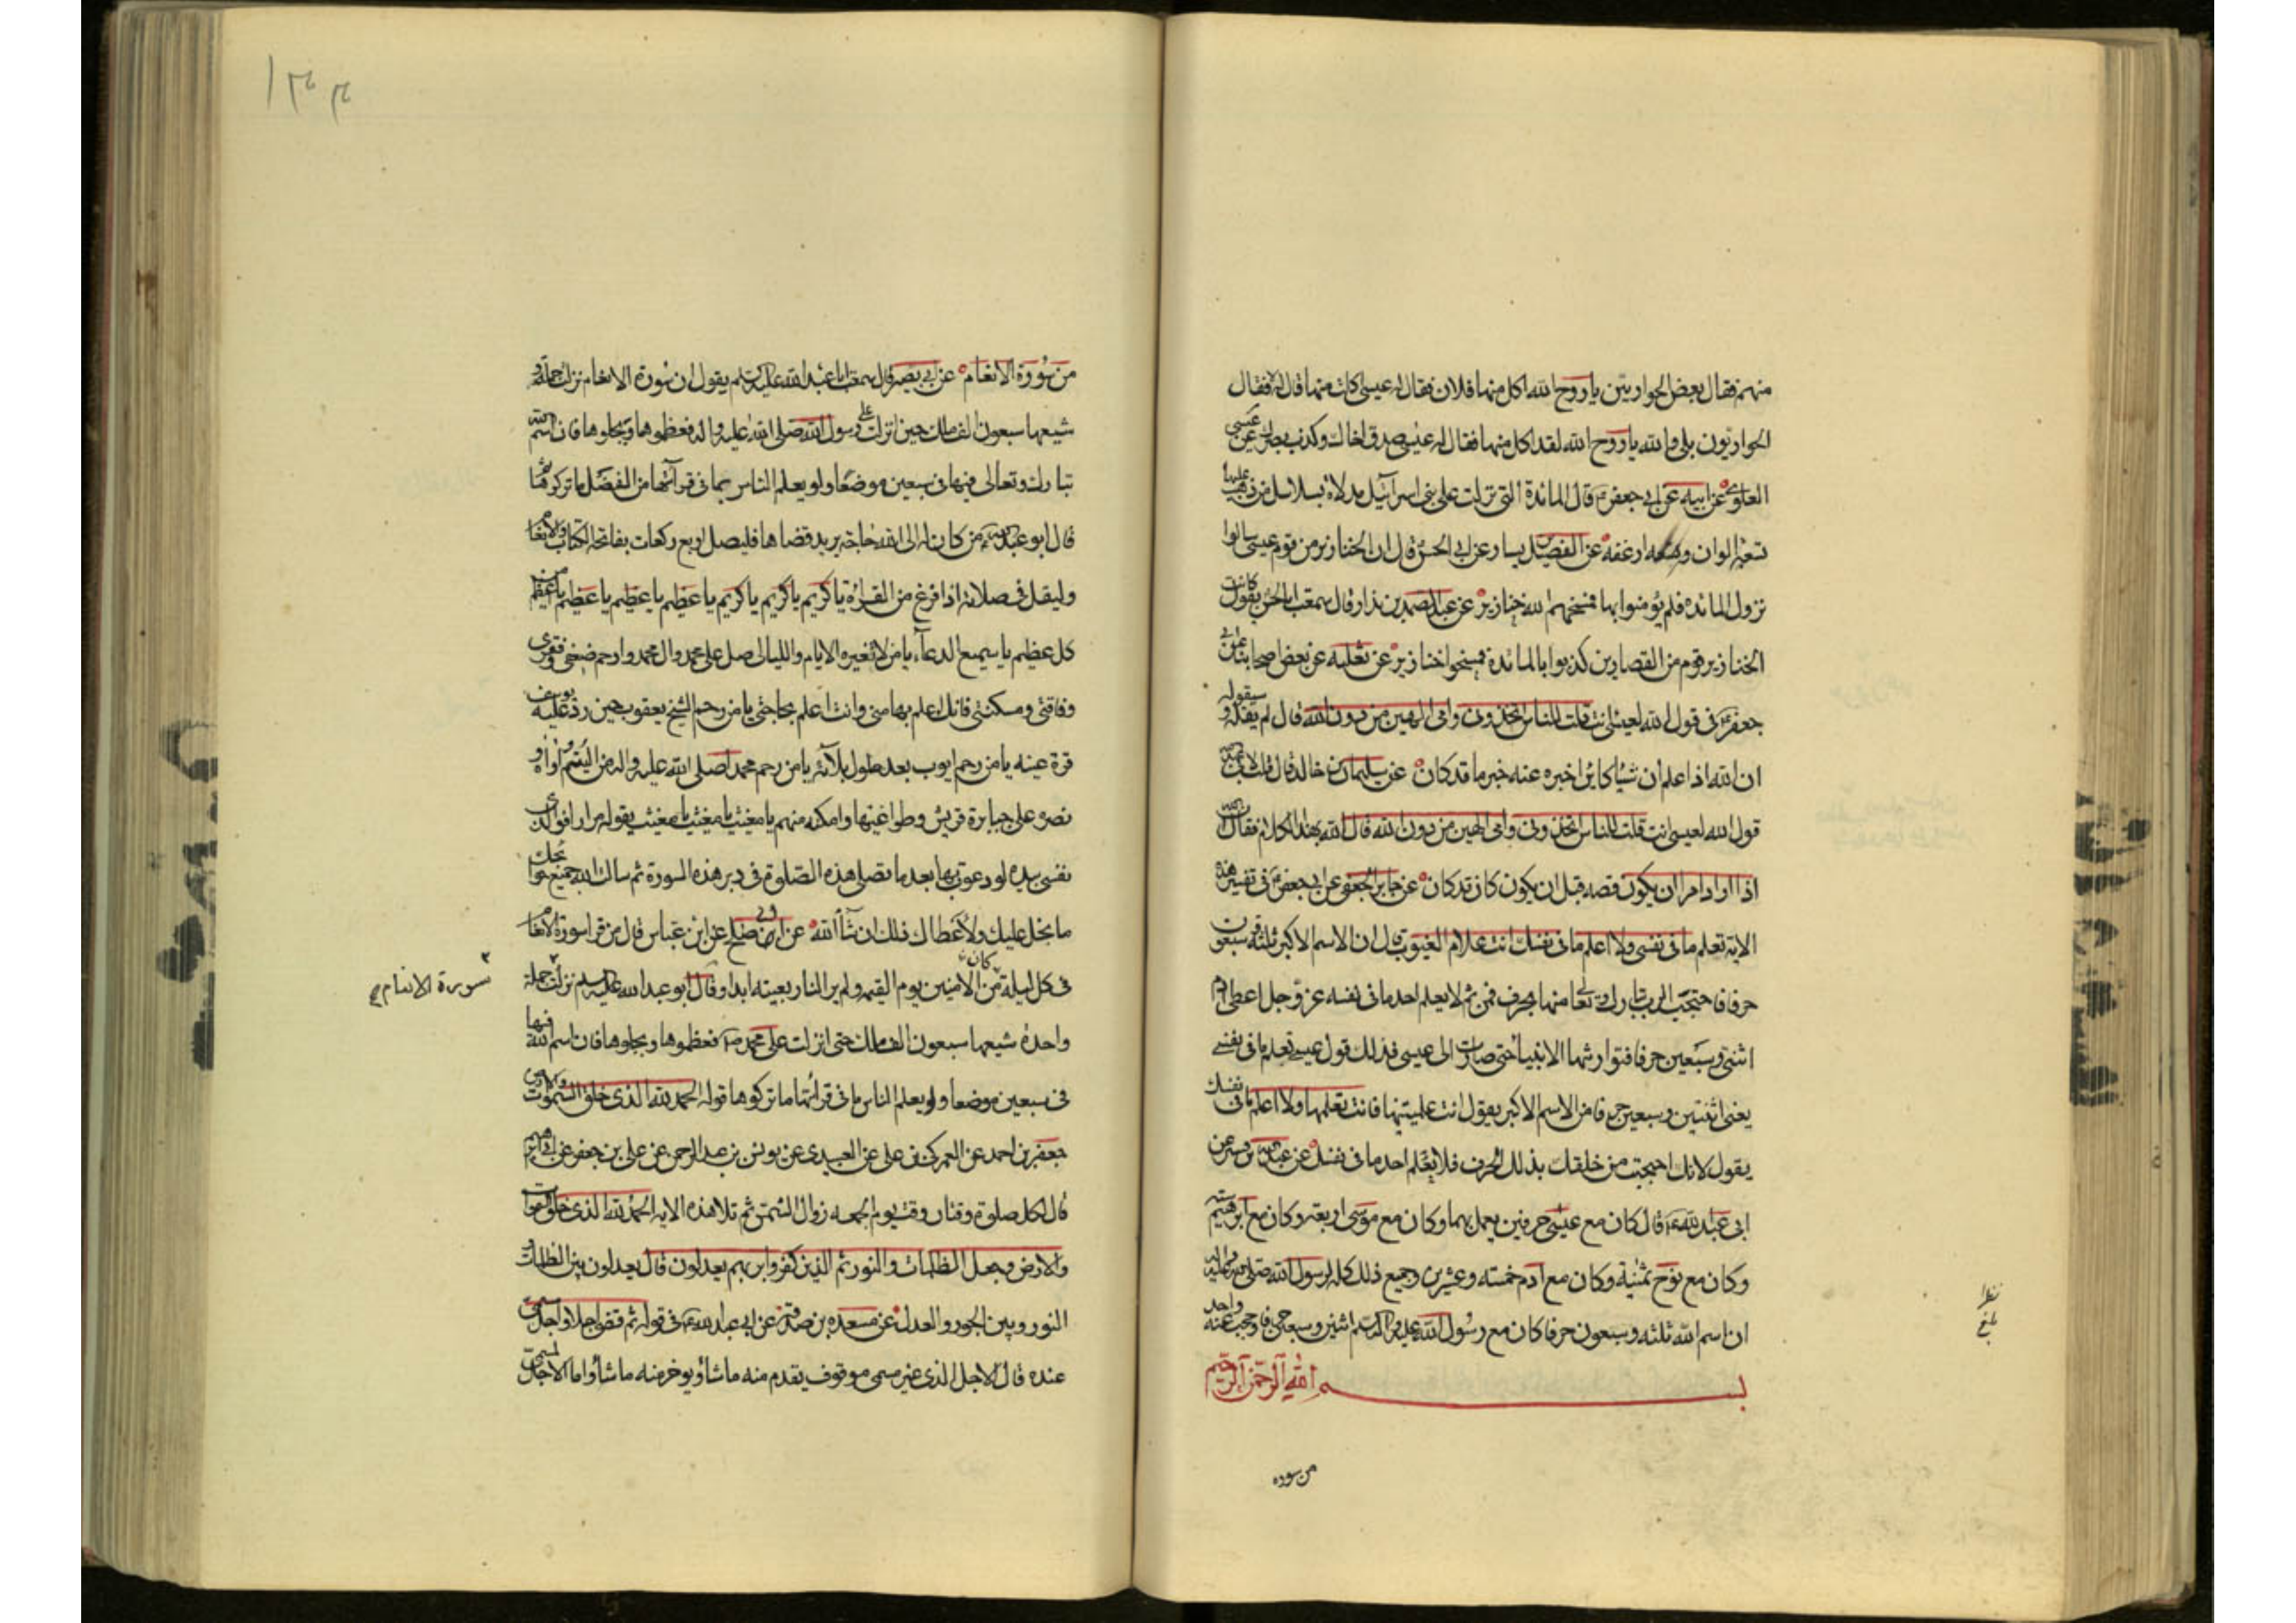 منهم فقال بعض الحواريين يا روح الله اكل منها فلان فقال له عيسى اكلت منها قال لا فقال
الحواريون بلى والله يا روح الله لقد اكل منها فقال له عيسى صدق اخاك وكذب بصرك عن عيسى
العلوى عن ابيه عن ابى جعفر ع قال المائدة التى نزلت على بنى اسرائيل مدلاة بسلاسل من ذهب عليها
تسعة الوان و ارغفه عن الفضيل بن يسار عن ابى الحسن قال ان الخنازير من قوم عيسى سالوا
نزول المائده فلم يؤمنوا بها فمسخهم الله خنازير عن عبد الصمد بن بندار قال سمعت ابا الحسن يقول كانت
الخنازير قوم من القصارين كذبوا بالمائدة فمسخوا خنازير عن ثعلبه عن بعض اصحابنا عن ابى
جعفر ع فى قول الله لعيسى اانت قلت للناس اتخذونى وامى الهين من دون الله قال لم يقله و سيقوله
ان الله اذا علم ان شيئا كاين اخبر عنه خبر ما قد كان عن سليمان بن خالد قال قلت لابى عبد الله
قول الله لعيسى اانت قلت للناس اتخذونى وامى الهين من دون الله قال الله بهذا الكلام فقال ان الله
اذا اراد امرا ان يكون قصه قبل ان يكون كان قد كان عن جابر الجعفى عن ابى جعفر ع فى تفسير هذه
الاية تعلم ما فى نفسى ولا اعلم ما فى نفسك انك انت علام الغيوب قال ان الاسم الاكبر ثلثة و سبعون
حرفا فاحتجب الرب تبارك وتعالى منها بحرف فمن ثم لا يعلم احد ما فى نفسه عز وجل اعطى ادم
اثنى وسبعين حرفا فتوارثها الانبياء حتى صارت الى عيسى فذلك قول عيسى تعلم ما فى نفسى
يعنى اثنتين وسبعين حرفا من الاسم الاكبر يقول انت علمتنيها فانت تعلمها ولا اعلم ما فى نفسك
يقول لانك احتجبت من خلقك بذلك الحرف فلا يعلم احد ما فى نفسك عن عبد الله بن بشير عن
ابى عبد الله ع قال كان مع عيسى حرفين يعمل بهما وكان مع موسى اربعة وكان مع ابرهيم ستة
وكان مع نوح ثمنية وكان مع ادم خمسه وعشرين وجمع ذلك كله لرسول الله صلى الله عليه واله
ان اسم الله ثلثه وسبعون حرفا كان مع رسول الله عليه واله السلم اثنين وسبعين حرفا وحجب عنه واحد
بسم الله الرحمن الرحيم
من سورة
بلغ نظرا
من سورة الانعام عن ابى بصير قال سمعت ابا عبد الله عليه السلم يقول ان سورة الانعام نزلت جملة و
شيعها سبعون الف ملك حين انزلت على رسول الله صلى الله عليه واله فعظموها وبجلوها فان اسم الله
تبارك وتعالى فيها فى سبعين موضعا ولو يعلم الناس بما فى قرائتها من الفضل ما تركوها ثم
قال ابو عبد الله ع من كان له الى الله حاجة يريد قضاها فليصل اربع ركعات بفاتحة الكتاب والانعام
وليقل فى صلاته اذا فرغ من القراءة يا كريم يا كريم يا كريم يا عظيم يا عظيم يا عظيم يا اعظم من
كل عظيم يا سميع الدعاء يا من لا تغيره الايام والليالى صل على محمد وال محمد وارحم ضعفى وفقرى
وفاقتى ومسكنتى فانك اعلم بها منى وانت اعلم بحاجتى يا من رحم الشيخ يعقوب حين رد عليه يوسف
قرة عينه يا من رحم ايوب بعد طول بلائه يا من رحم محمدا صلى الله عليه واله من اليتم اواه و
نصره على جبابرة قريش وطواغيتها وامكنه منهم يا مغيث يا مغيث يا مغيث يقوله مرارا فوالذى
نفسى بيده لو دعوت بها بعد ما تصلى هذه الصلوة فى دبر هذه السورة ثم سالت الله جميع حوائجك
ما بخل عليك ولاعطاك ذلك ان شاء الله عن ابى صالح عن ابن عباس قال من قرا سورة الانعام
فى كل ليلة كان من الامنين يوم القيمه ولم ير النار بعينه ابدا وقال ابو عبد الله عليه السلم نزلت جملة
واحدة شيعها سبعون الف ملك حتى انزلت على محمد ص فعظموها وبجلوها فان اسم الله فيها
فى سبعين موضعا ولو يعلم الناس ما فى قرائتها ما تركوها قوله الحمد لله الذى خلق السموات والارض
جعفر بن احمد عن العمركى بن على عن العبيدى عن يونس بن عبد الرحمن عن على بن جعفر عن ابى ابرهيم
قال لكل صلوة وقتان وقت يوم الجمعه زوال الشمس ثم تلا هذه الايه الحمد لله الذى خلق السموات
والارض وجعل الظلمات والنور ثم الذين كفروا بربهم يعدلون قال يعدلون بين الظلمات و
النور وبين الجور والعدل عن مسعده بن صدقة عن ابى عبد الله ع فى قوله ثم قضى اجلا واجل مسمى
عنده قال الاجل الذى غير مسمى موقوف يقدم منه ما شاء ويوخر منه ما شاء واما الاجل المسمى
سورة الانعام